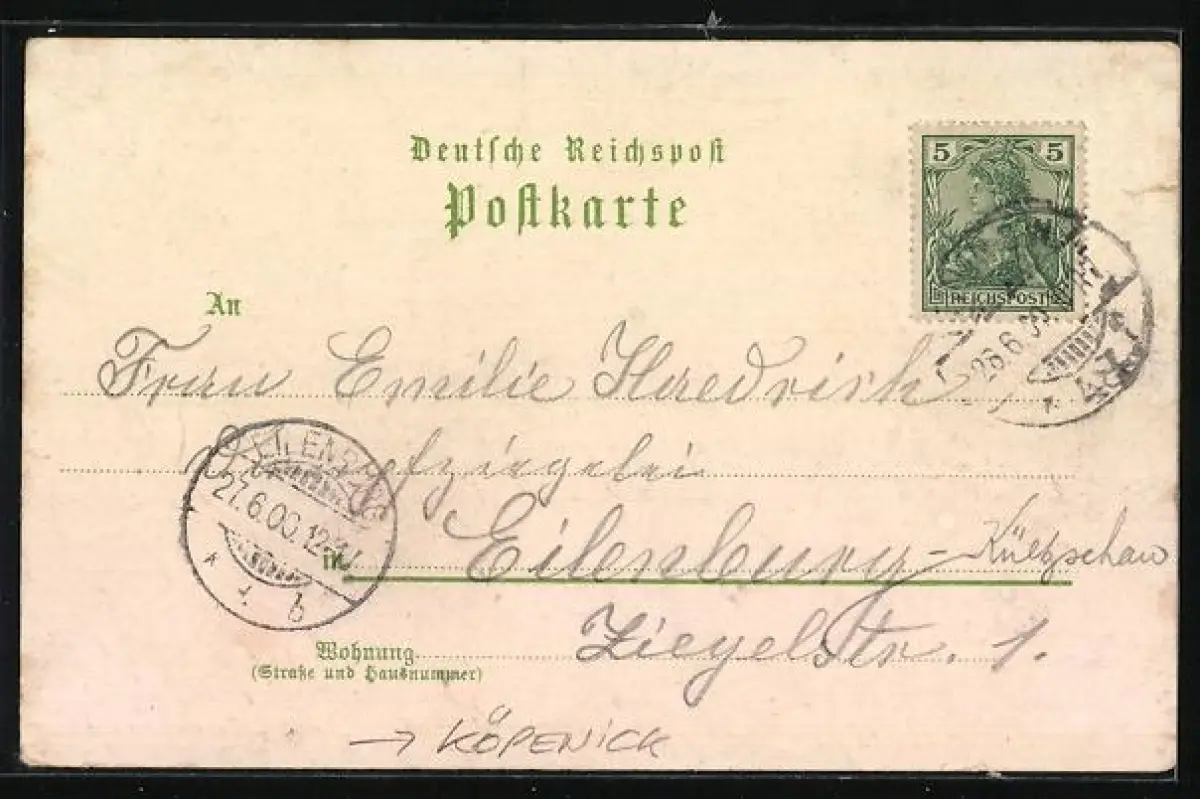 Deutsche Reichspost
Postkarte
5 5
REICHSPOST
26.6.00.
An
Frau Emilie Haedrich
EILENBURG
27.6.00.12
b
in Eilenburg - Kültzschau
Wohnung Ziegelstr. 1.
(Straße und Hausnummer)
→ KÖPENICK